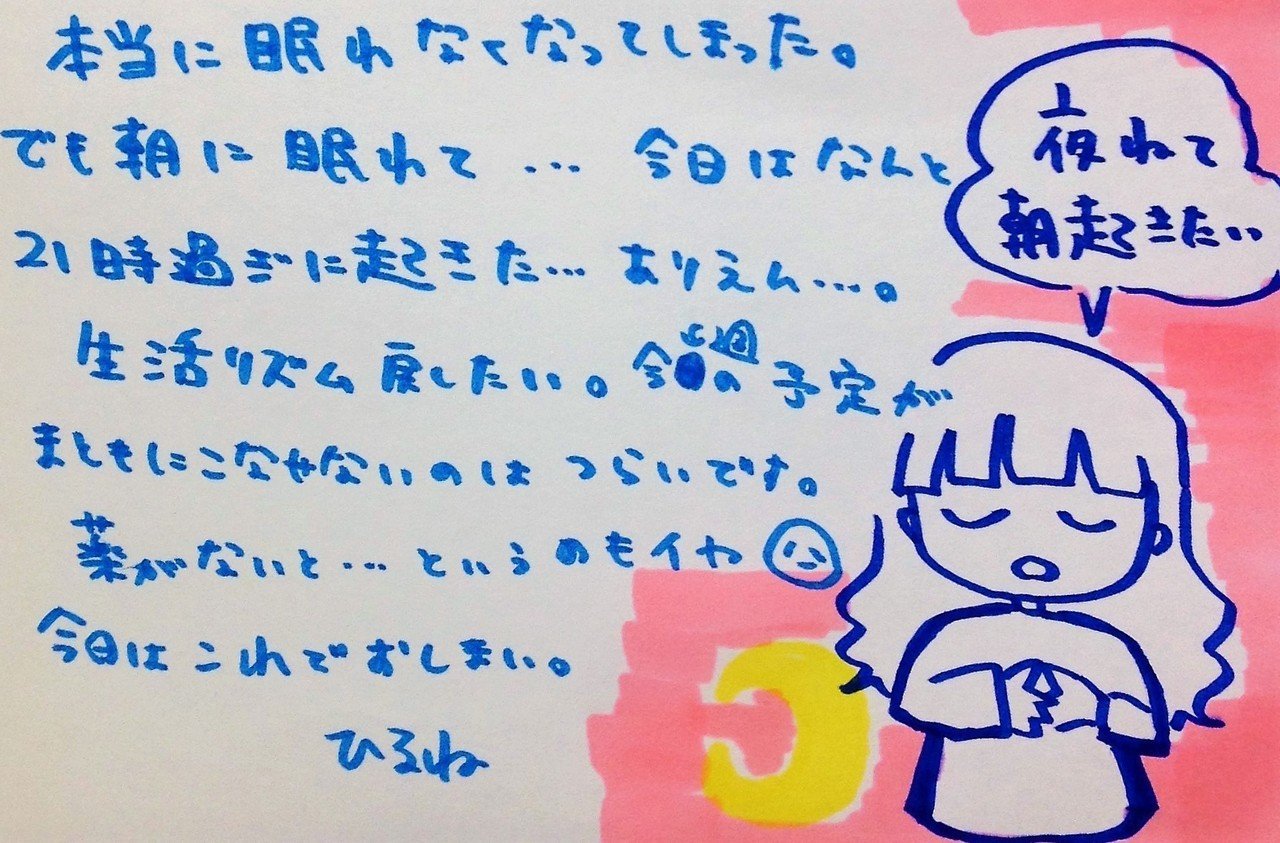 本当に眠れなくなってしまった。
でも朝に眠れて… 今日はなんと
21時過ぎに起きた… ありえん…。
生活リズム戻したい。今週の予定が
まともにこなせないのはつらいです。
薬がないと…というのもイヤ
今日はこれでおしまい。
ひるね
夜ねて
朝起きたい